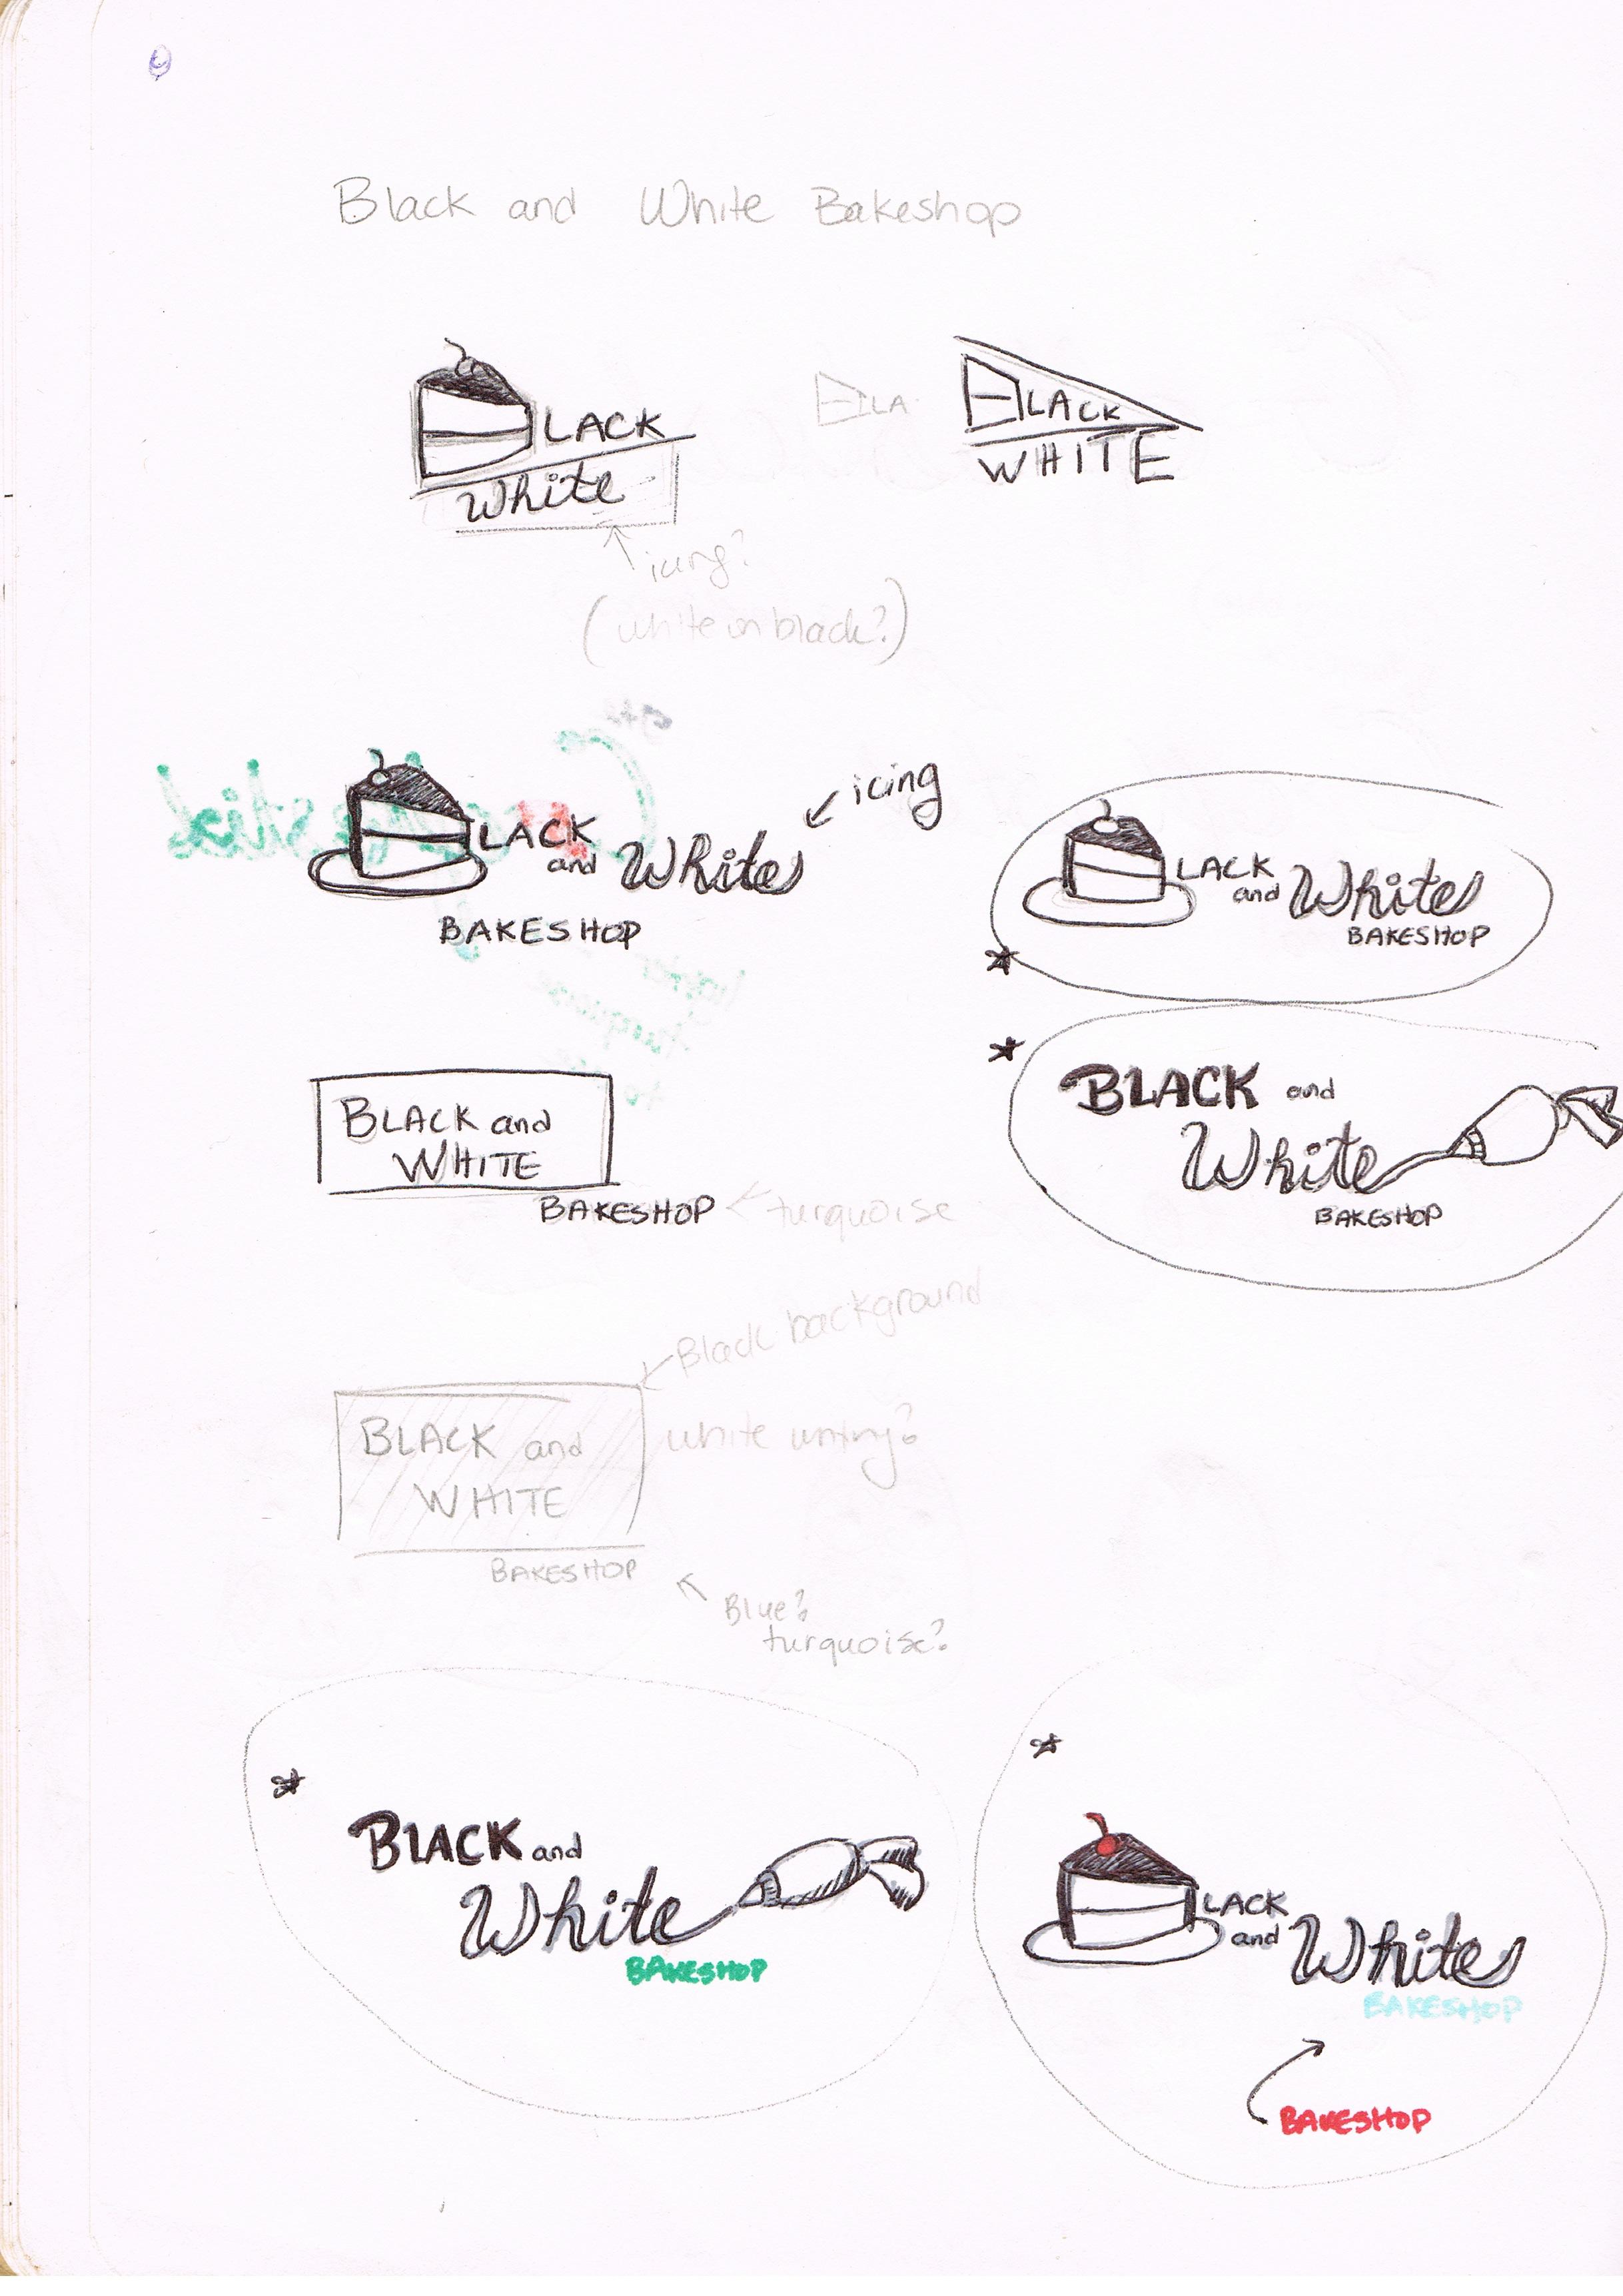 Black and White Bakeshop
LACK
White
icing?
(white on black?)
LA
BLACK
WHITE
LACK
and White
BAKESHOP
icing
LACK
and White
BAKESHOP
BLACK and
WHITE
BAKESHOP
turquoise
BLACK and
White
BAKESHOP
Black background
BLACK and
WHITE
white writing?
BAKESHOP
Blue?
turquoise?
BLACK and
White
BAKESHOP
LACK
and White
BAKESHOP
BAKESHOP